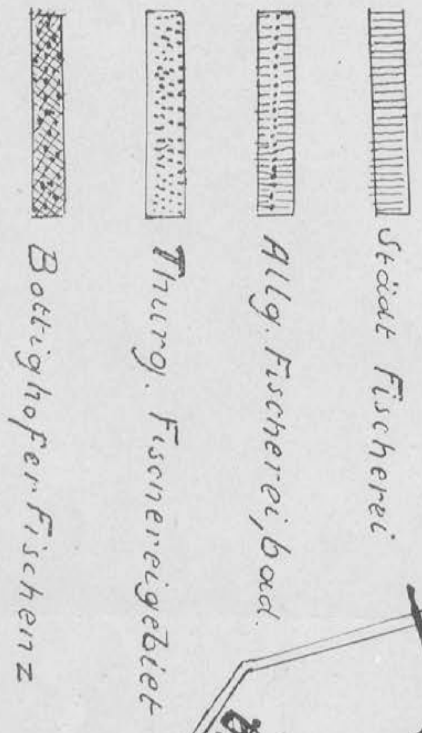 Städt Fischerei
Allg. Fischerei, bad.
Thurg. Fischereigebiet
Bottighofer Fischenz